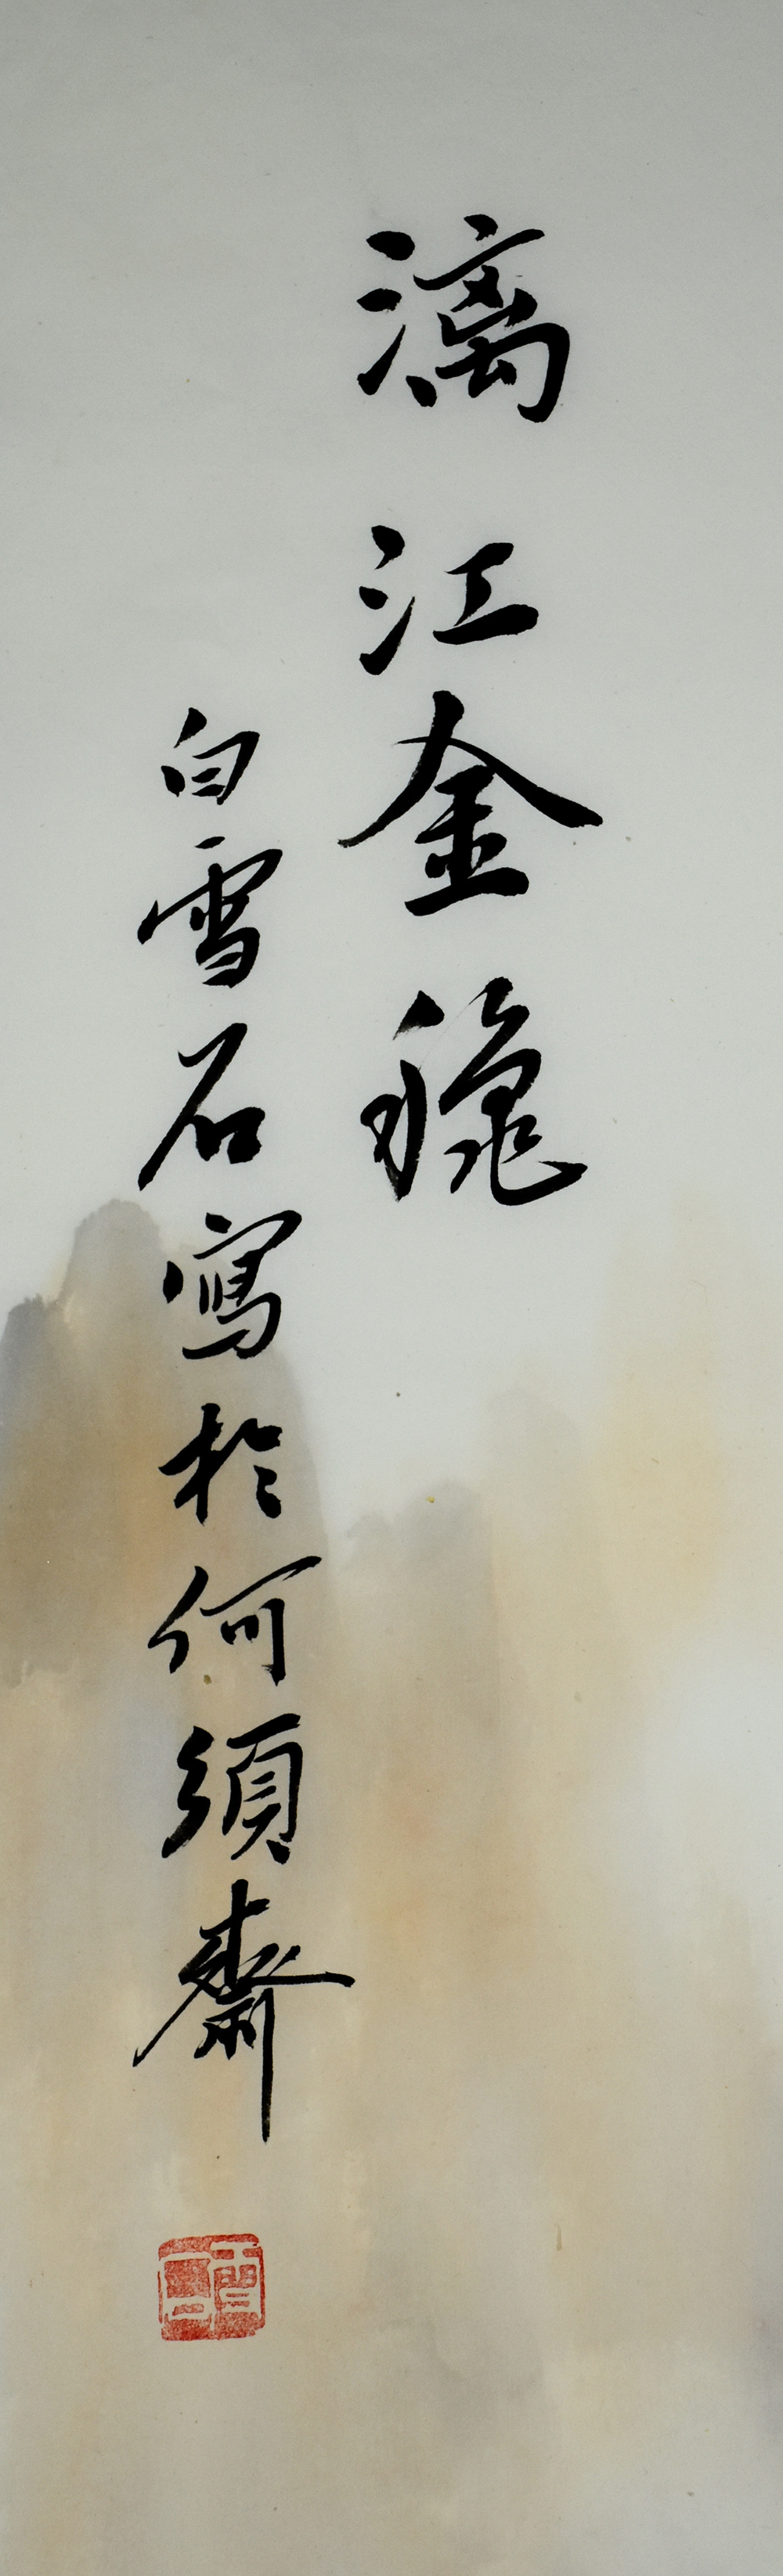 漓江金穐
白雪石寫於何須齋